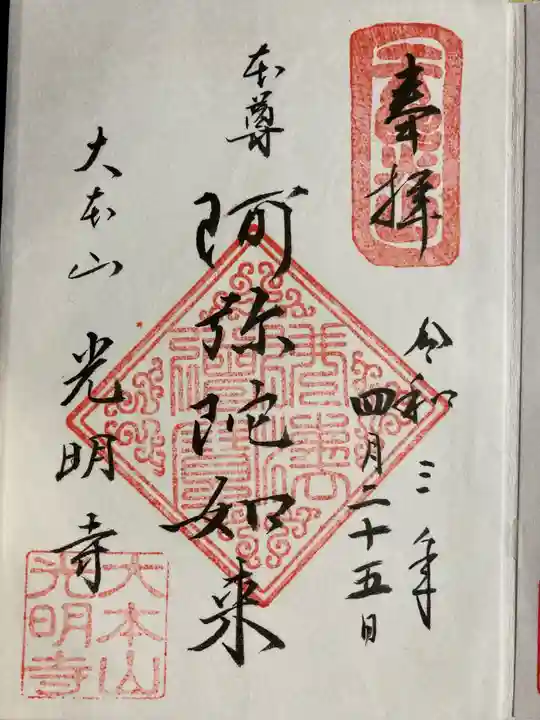 奉拝
令和三年
四月二十五日
本尊
阿弥陀如来
大本山 光明寺
大本山
光明寺